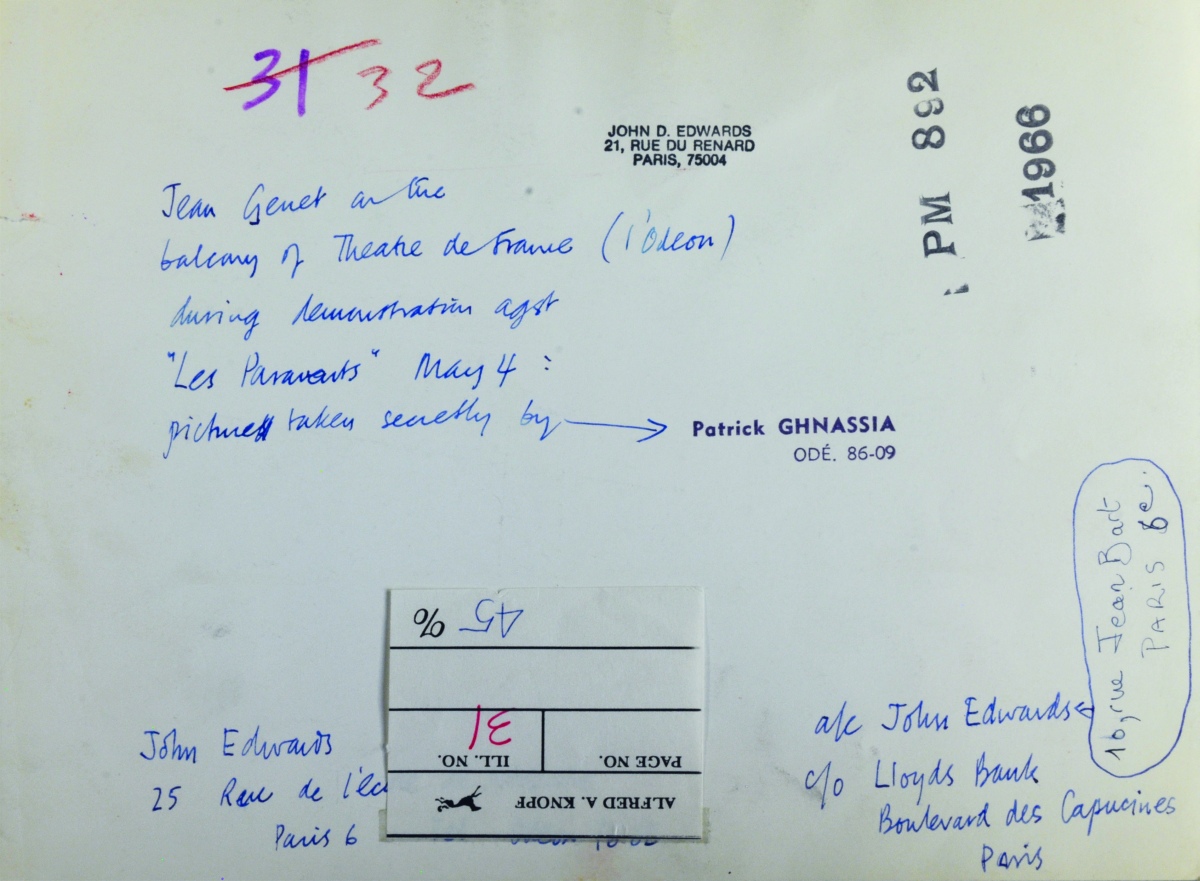 31 32
JOHN D. EDWARDS
21, RUE DU RENARD
PARIS, 75004
PM 892
1966
Jean Genet on the
balcony of Theatre de France (l'Odeon)
during demonstration agst
"Les Paravents" May 4 :
picture taken secretly by → Patrick GHNASSIA
ODÉ. 86-09
16, rue Jean Bart
PARIS 6e.
45 %
ILL. NO. 31
PAGE NO.
ALFRED A. KNOPF
John Edwards
25 Rue de l'
Paris 6
a/c John Edwards
c/o Lloyds Bank
Boulevard des Capucines
Paris